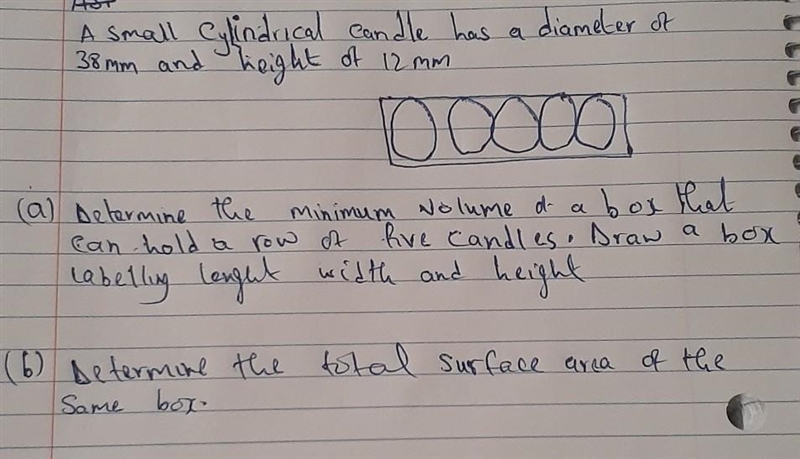 A small Cylindrical candle has a diameter of
38mm and height of 12mm
(a) Determine the minimum Volume of a box that
can hold a row of five candles. Draw a box
labelling lenght width and height
(b) Determine the total surface area of the
Same box.